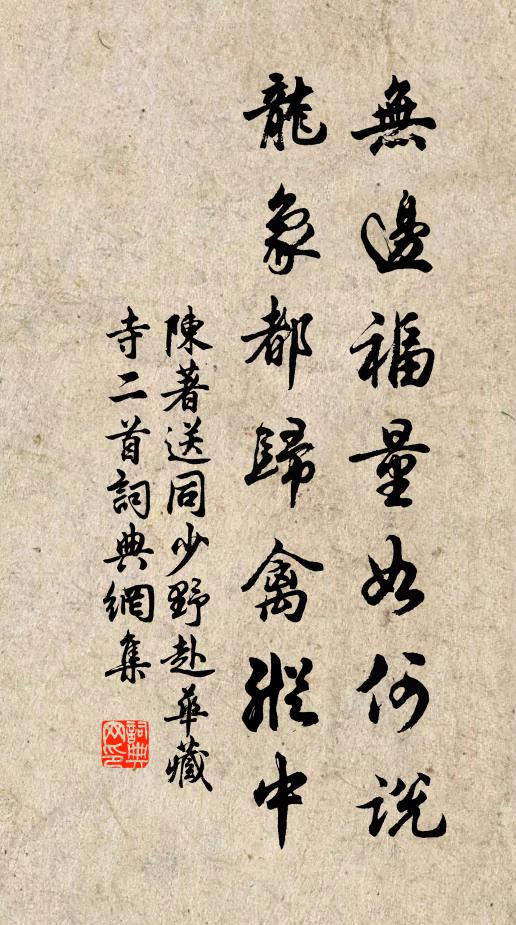 無邊福量如何說
龍象都歸禽縱中
陳著送同少野赴華藏
寺二首詞典網集
詞典
網印